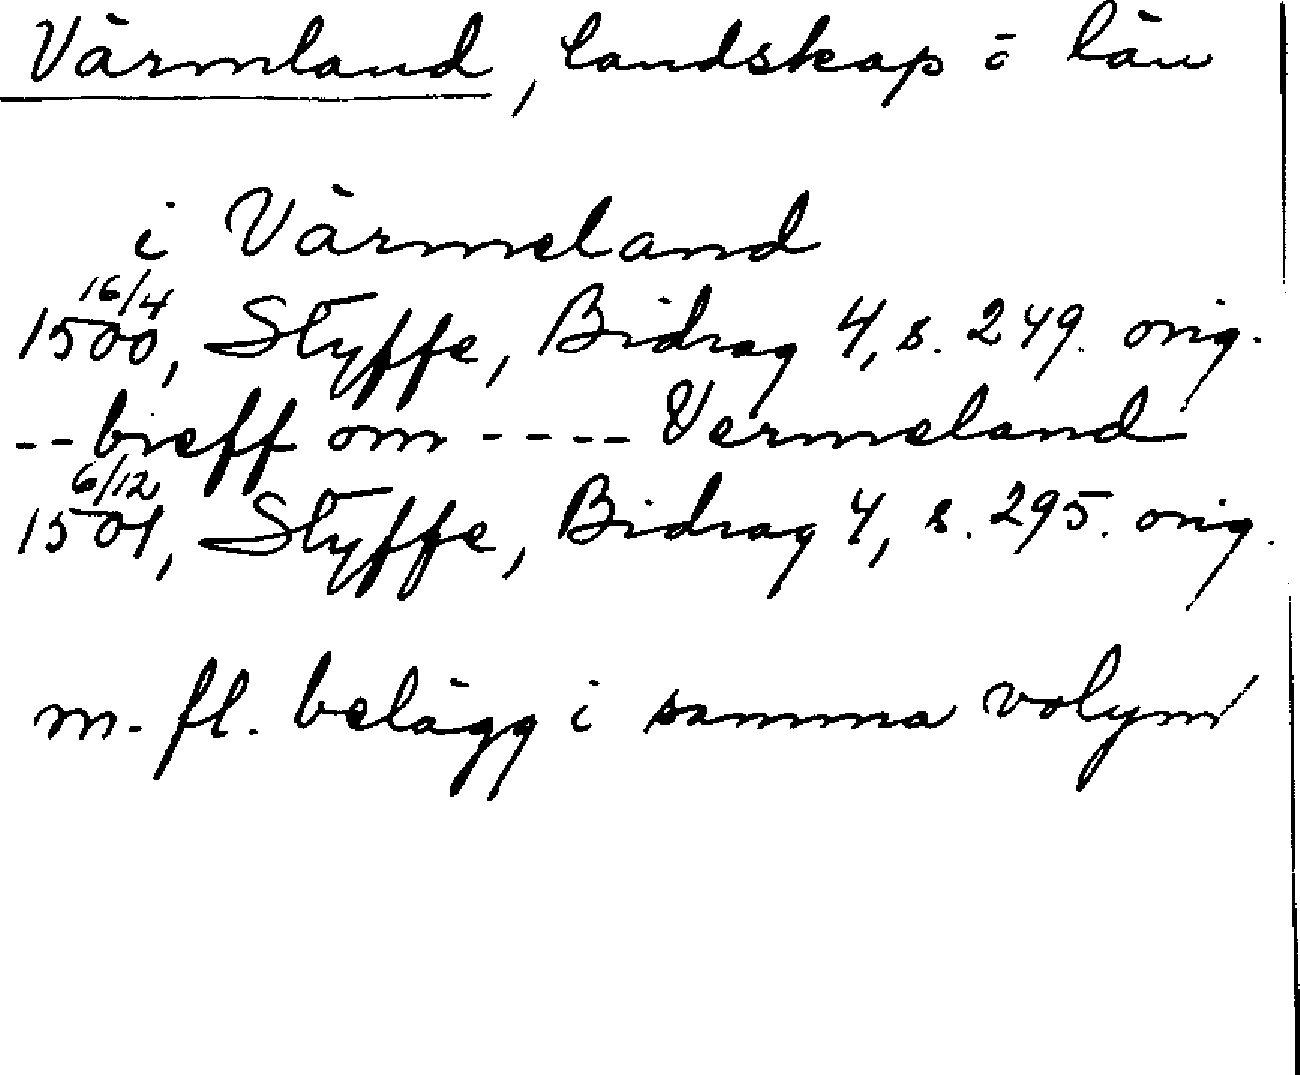 Värmland, landskap o län
i Värmeland
16/4
1500, Styffe, Bidrag 4, s. 249. orig.
-- breff om ---- Vermeland
6/12
1501, Styffe, Bidrag 4, s. 295. orig.
m. fl. belägg i samma volym